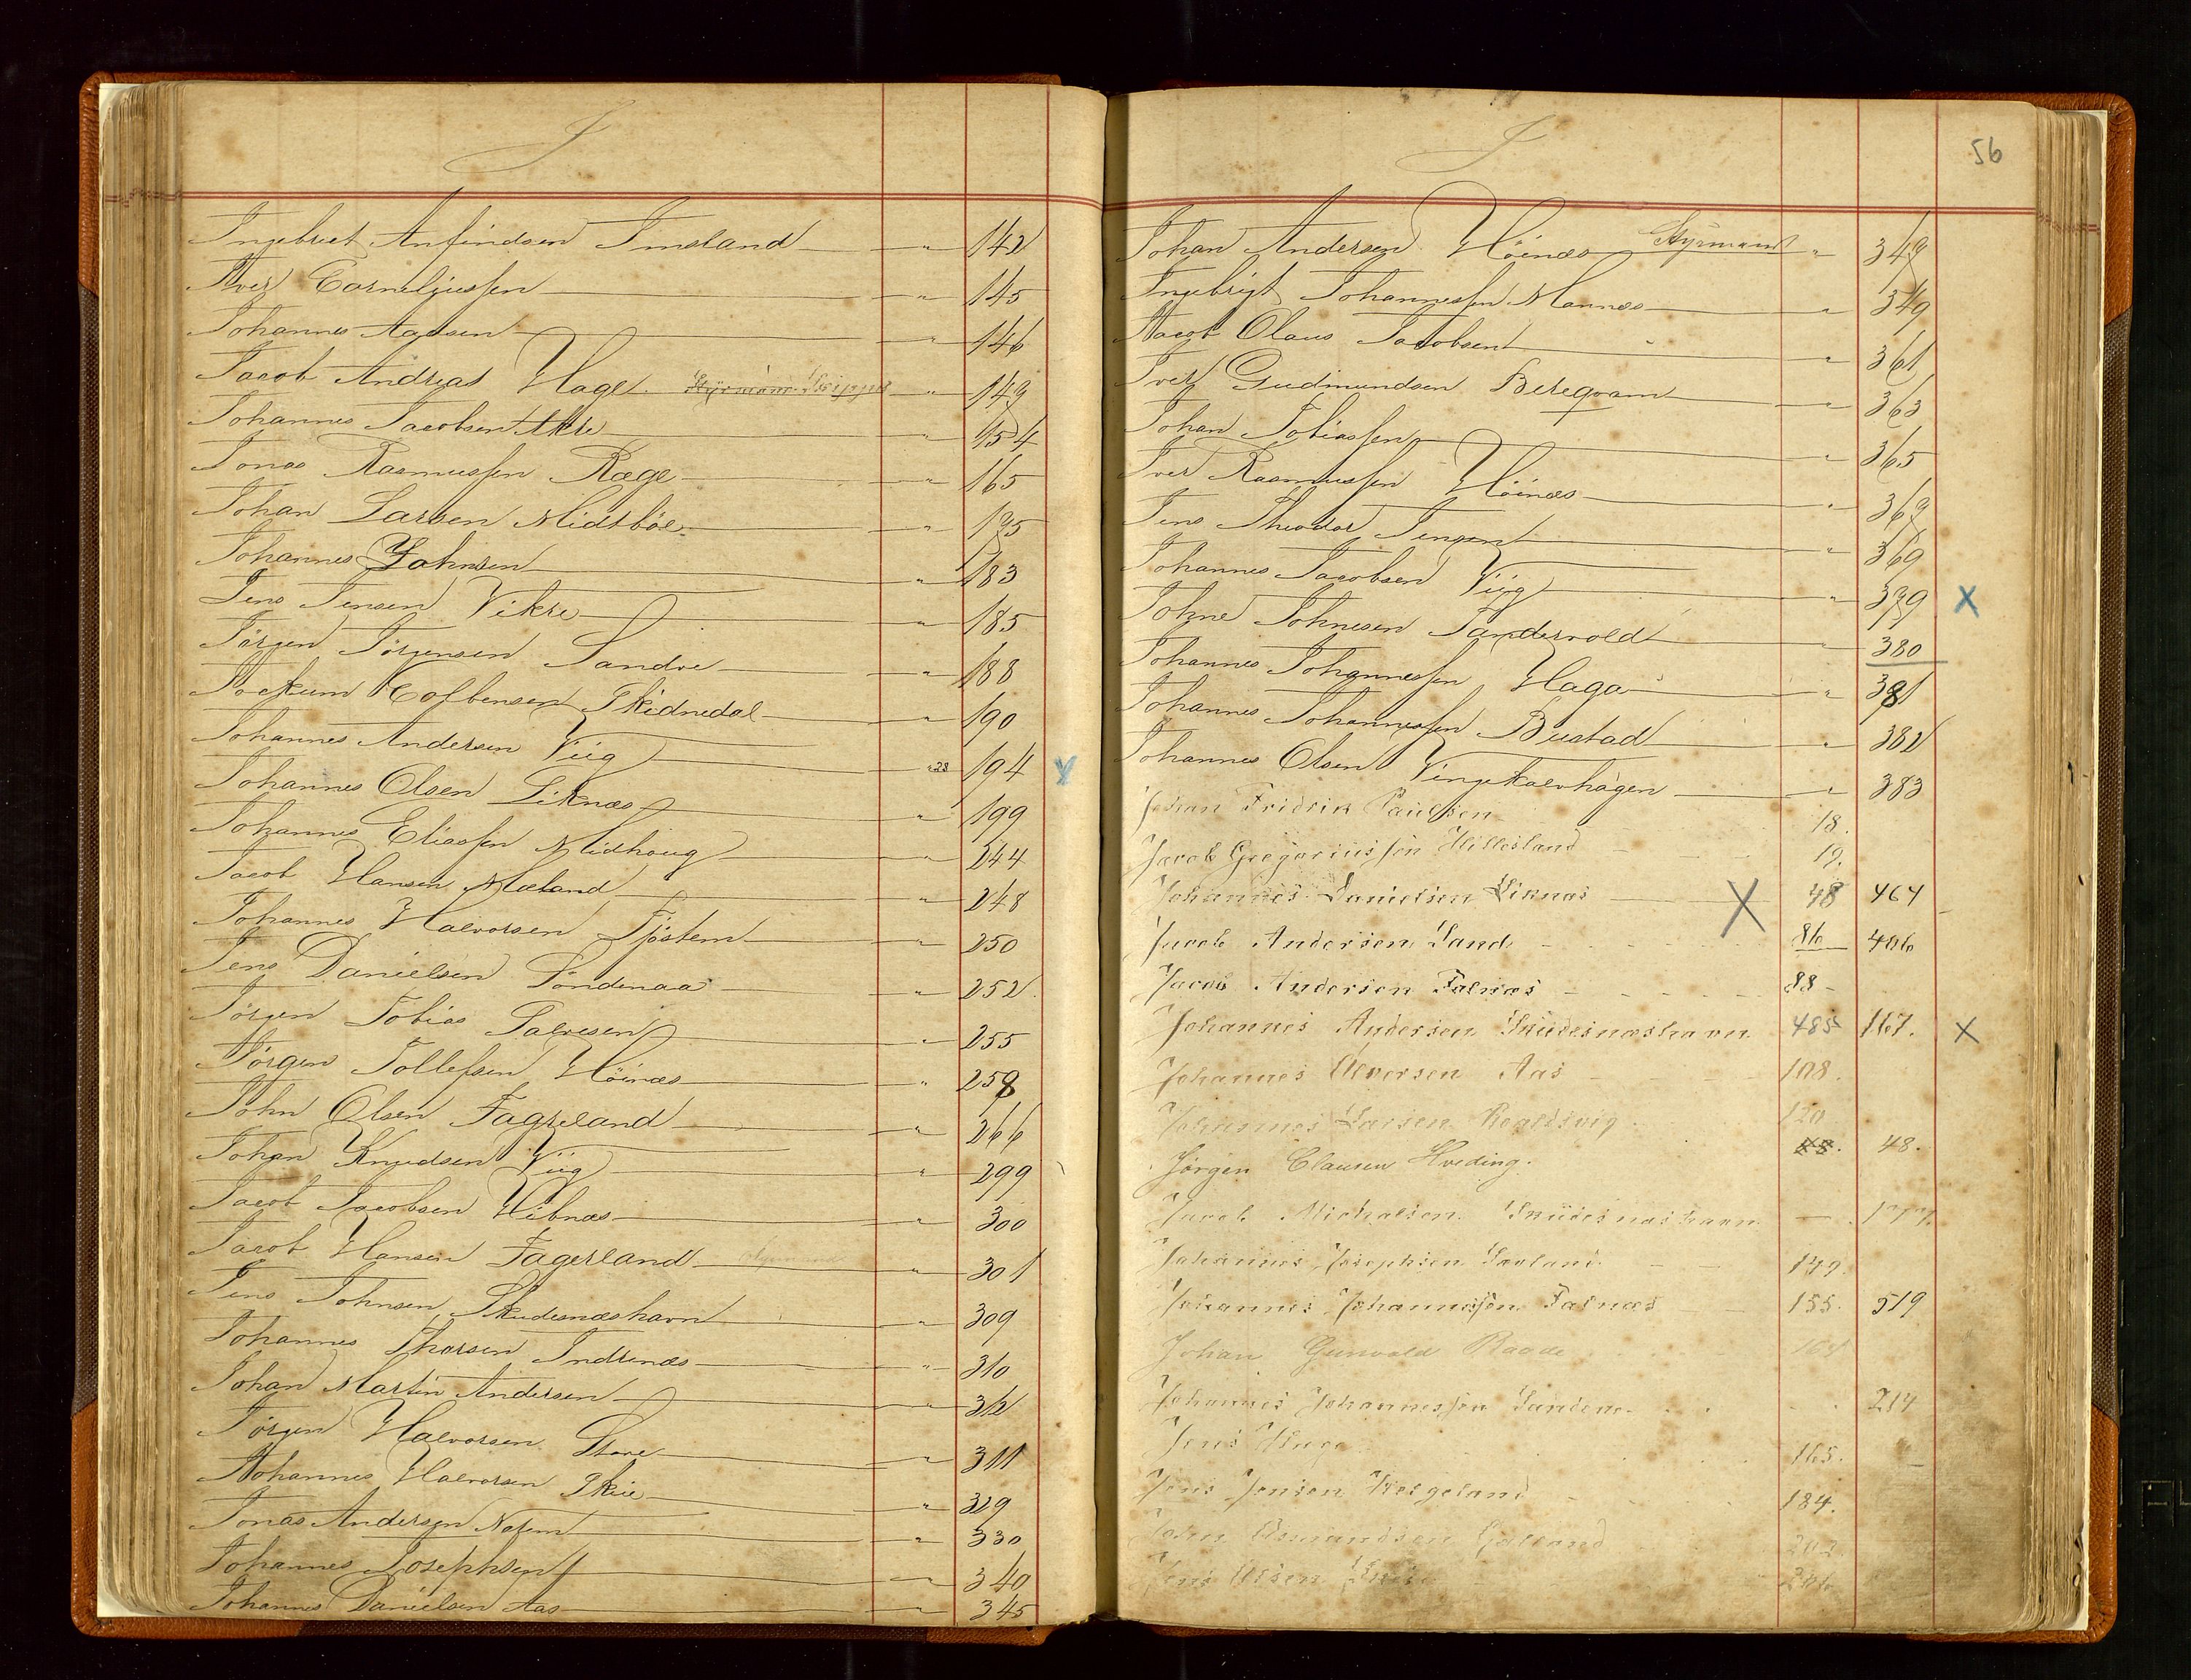 J
Ingebret Anfindsen Imsland — " — 142
Iver Corneliussen — " — 145
Johannes Aadsen — " — 146
Jacob Andreas Hage Styrmann Skipper " — 149
Johannes Jacobsen Akre — " — 154
Jonas Rasmussen Ræge — " — 165
Johan Larsen Midtböe — " — 175
Johannes Johnsen — " — 183
Jens Jensen Vikre — " — 185
Jörgen Jörgensen Sandve — " — 188
Jockum Kolbensen Skidnedal — " — 190
Johannes Andersen Viig — " 28 194
Johannes Olsen Liknæs — " — 199
Johannes Eliassen Midhoug — " — 244
Jacob Hansen Mæland — " — 248
Johannes Halvorsen Tjöstem — " — 250
Jens Danielsen Söndenaa — " — 252
Jörgen Tobias Salvesen — " — 255
Jörgen Tollefsen Höinæs — " — 258
John Olsen Fagerland — " — 266
Johan Knudsen Viig — " — 299
Jacob Jacobsen Vibnæs — " — 300
Jacob Hansen Fagerland — " — 301
Jens Johnsen Skudesnæshavn — " — 309
Johannes Thorsen Indrenæs — " — 310
Johan Martin Andersen — " — 312
Jörgen Halvorsen Stove — " — 311
Johannes Halvorsen Skeie — " — 329
Jonas Andersen Natem — " — 330
Johannes Josephsen — " — 340
Johannes Danielsen Aas — 345
56
J
Johan Andersen Höinæs Styrmand " — 349
Ingebrigt Johannessen Mannes — " 349
Jacob Olaus Jacobsen — " 361
Iver Gudmundsen Bereqvam — " 363
Johan Tobiassen — " 365
Iver Rasmussen Höinæs — " 369
Jens Theodor Jensen — " 369
Johannes Jacobsen Viig — " 379 X
Johne Johnesen Tandervold — " 380
Johannes Johannessen Haga — " 381
Johannes Johannessen Bustad — " 382
Johannes Olsen Vingekalvhagen — " 383
Johan Fridrik Paulsen 18.
Jacob Gregoriussen Hillesland — 19.
Johannes Danielsen Liknæs — X 48 464
Jacob Andersen Sand — 86 406
Jacob Andersen Falnæs — 88 —
Johannes Andersen Skudesnæshavn 485 167. X
Johannes Alversen Aas — 108.
Johannes Larsen Roaldsvig. 120.
Jörgen Clausen Hveding. 48.
Jacob Michalsen Skudesnæshavn — 177.
Johannes Josephsen Sævland — 149.
Johannes Johannessen Falnæs — 155. 519
Johan Gunvald Raade
Johannes Johannessen Sandene 214
Jens Hage 165.
Jens Jensen Helgeland — 184.
John Asmundsen 202.
Jens Olsen